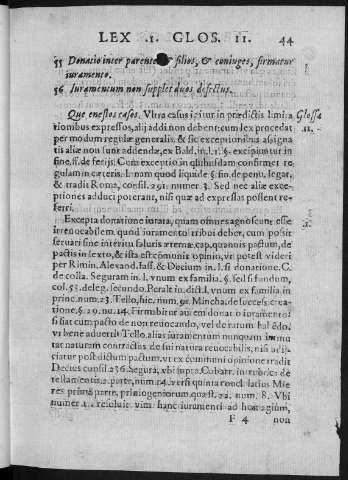 LEX .1. GLOS. 11. 44
55 Donatio inter parentes & filios, & coniuges, firmatur
iuramento.
56 Iuramentum non supplet duos defectus.
Que enestos casos. Vltra casus igitur in prædictis limita
Glossa
11.
tionibus expressos, alij addi non debent: cum lex procedat
per modum regulæ generalis, & sic exceptionibus assigna
tis aliæ non sunt addendæ, ex Bald. in l. 1. §. excipiuntur in
fine, ff. de ferijs. Cum exceptio in quibusdam confirmet re
gulam in cæteris. l. nam quod liquide §. fin. de penu. legat.
& tradit Roma, consil. 291. numer. 3. Sed nec aliæ exce-
ptiones adduci poterant, nisi quæ ad expressas possent re-
ferri.
Excepta donatione iurata, quam omnes agnoscunt esse
irreuocabilem quod iuramento tribui debet, cum possit
seruari sine interitu salutis æternæ. cap. quanuis pactum, de
pactis in sexto, & ista est communis opinio, vt potest videri
per Rimin. Alexand. Iass. & Decium in l. 1. si donatione. C.
de colla. Seguram in l. vnum ex familia. §. sed si fundum,
col. 53. deleg. secundo. Peralt. in dict. l. vnum ex familia in
princ. num. 23. Tello, hic. num. 91. Mincha, de success. crea-
tione, §. 29. nu. 14. Firmbitur autem donatio iuramento
si fiat cum pacto de non reuocando, vel de ratum habēdo.
vt bene aduertit Tello, alias iuramentum nunquam immu
tat naturam contractus de sui natura reuocabilis, nisi adij-
ciatur post dictum pactum, vt ex communi opinione tradit
Decius consil. 236. Segura, vbi supra. Couarr. in rubrica de
testamentis. 2. parte, num. 14. versi quinta concl. latius Mie
res prima parte, primogeniorum quæst. 22. num. 8. Vbi
numer. 11. resoluit vim hanc iuramenti ad homagium,
F 4 non